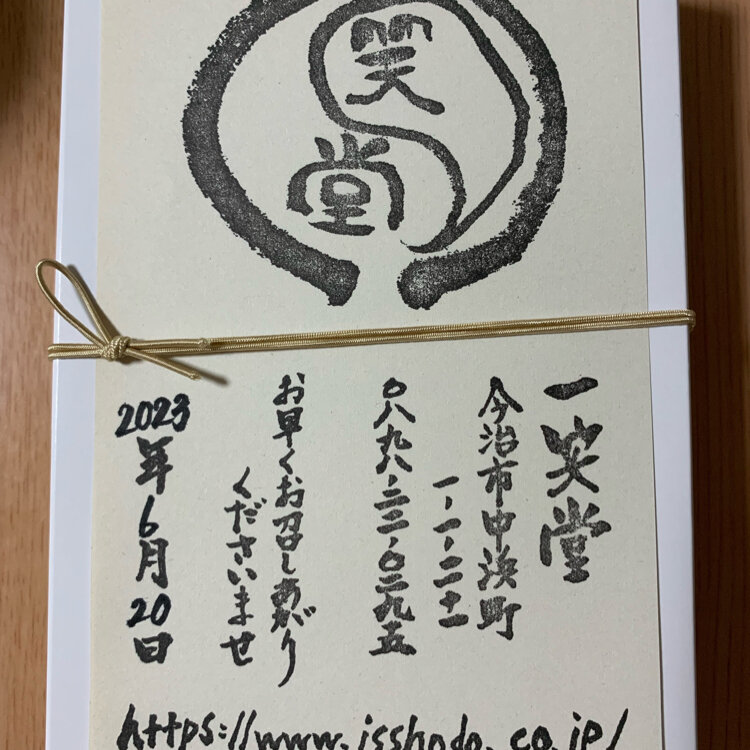 笑
堂
一笑堂
今治市中浜町
一-一-二十一
〇八九八-二三-〇二九五
お早くお召しあがり
くださいませ
2023年6月20日
https://www.isshodo.co.jp/